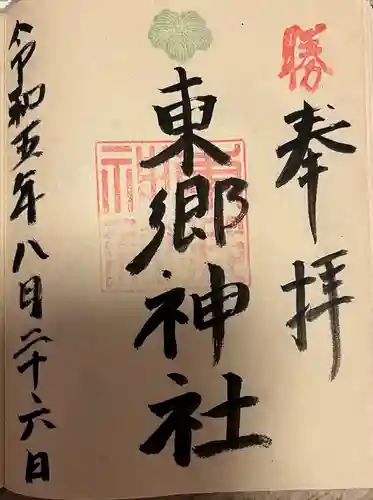 勝
奉拝
東郷神社
令和五年八月二十六日